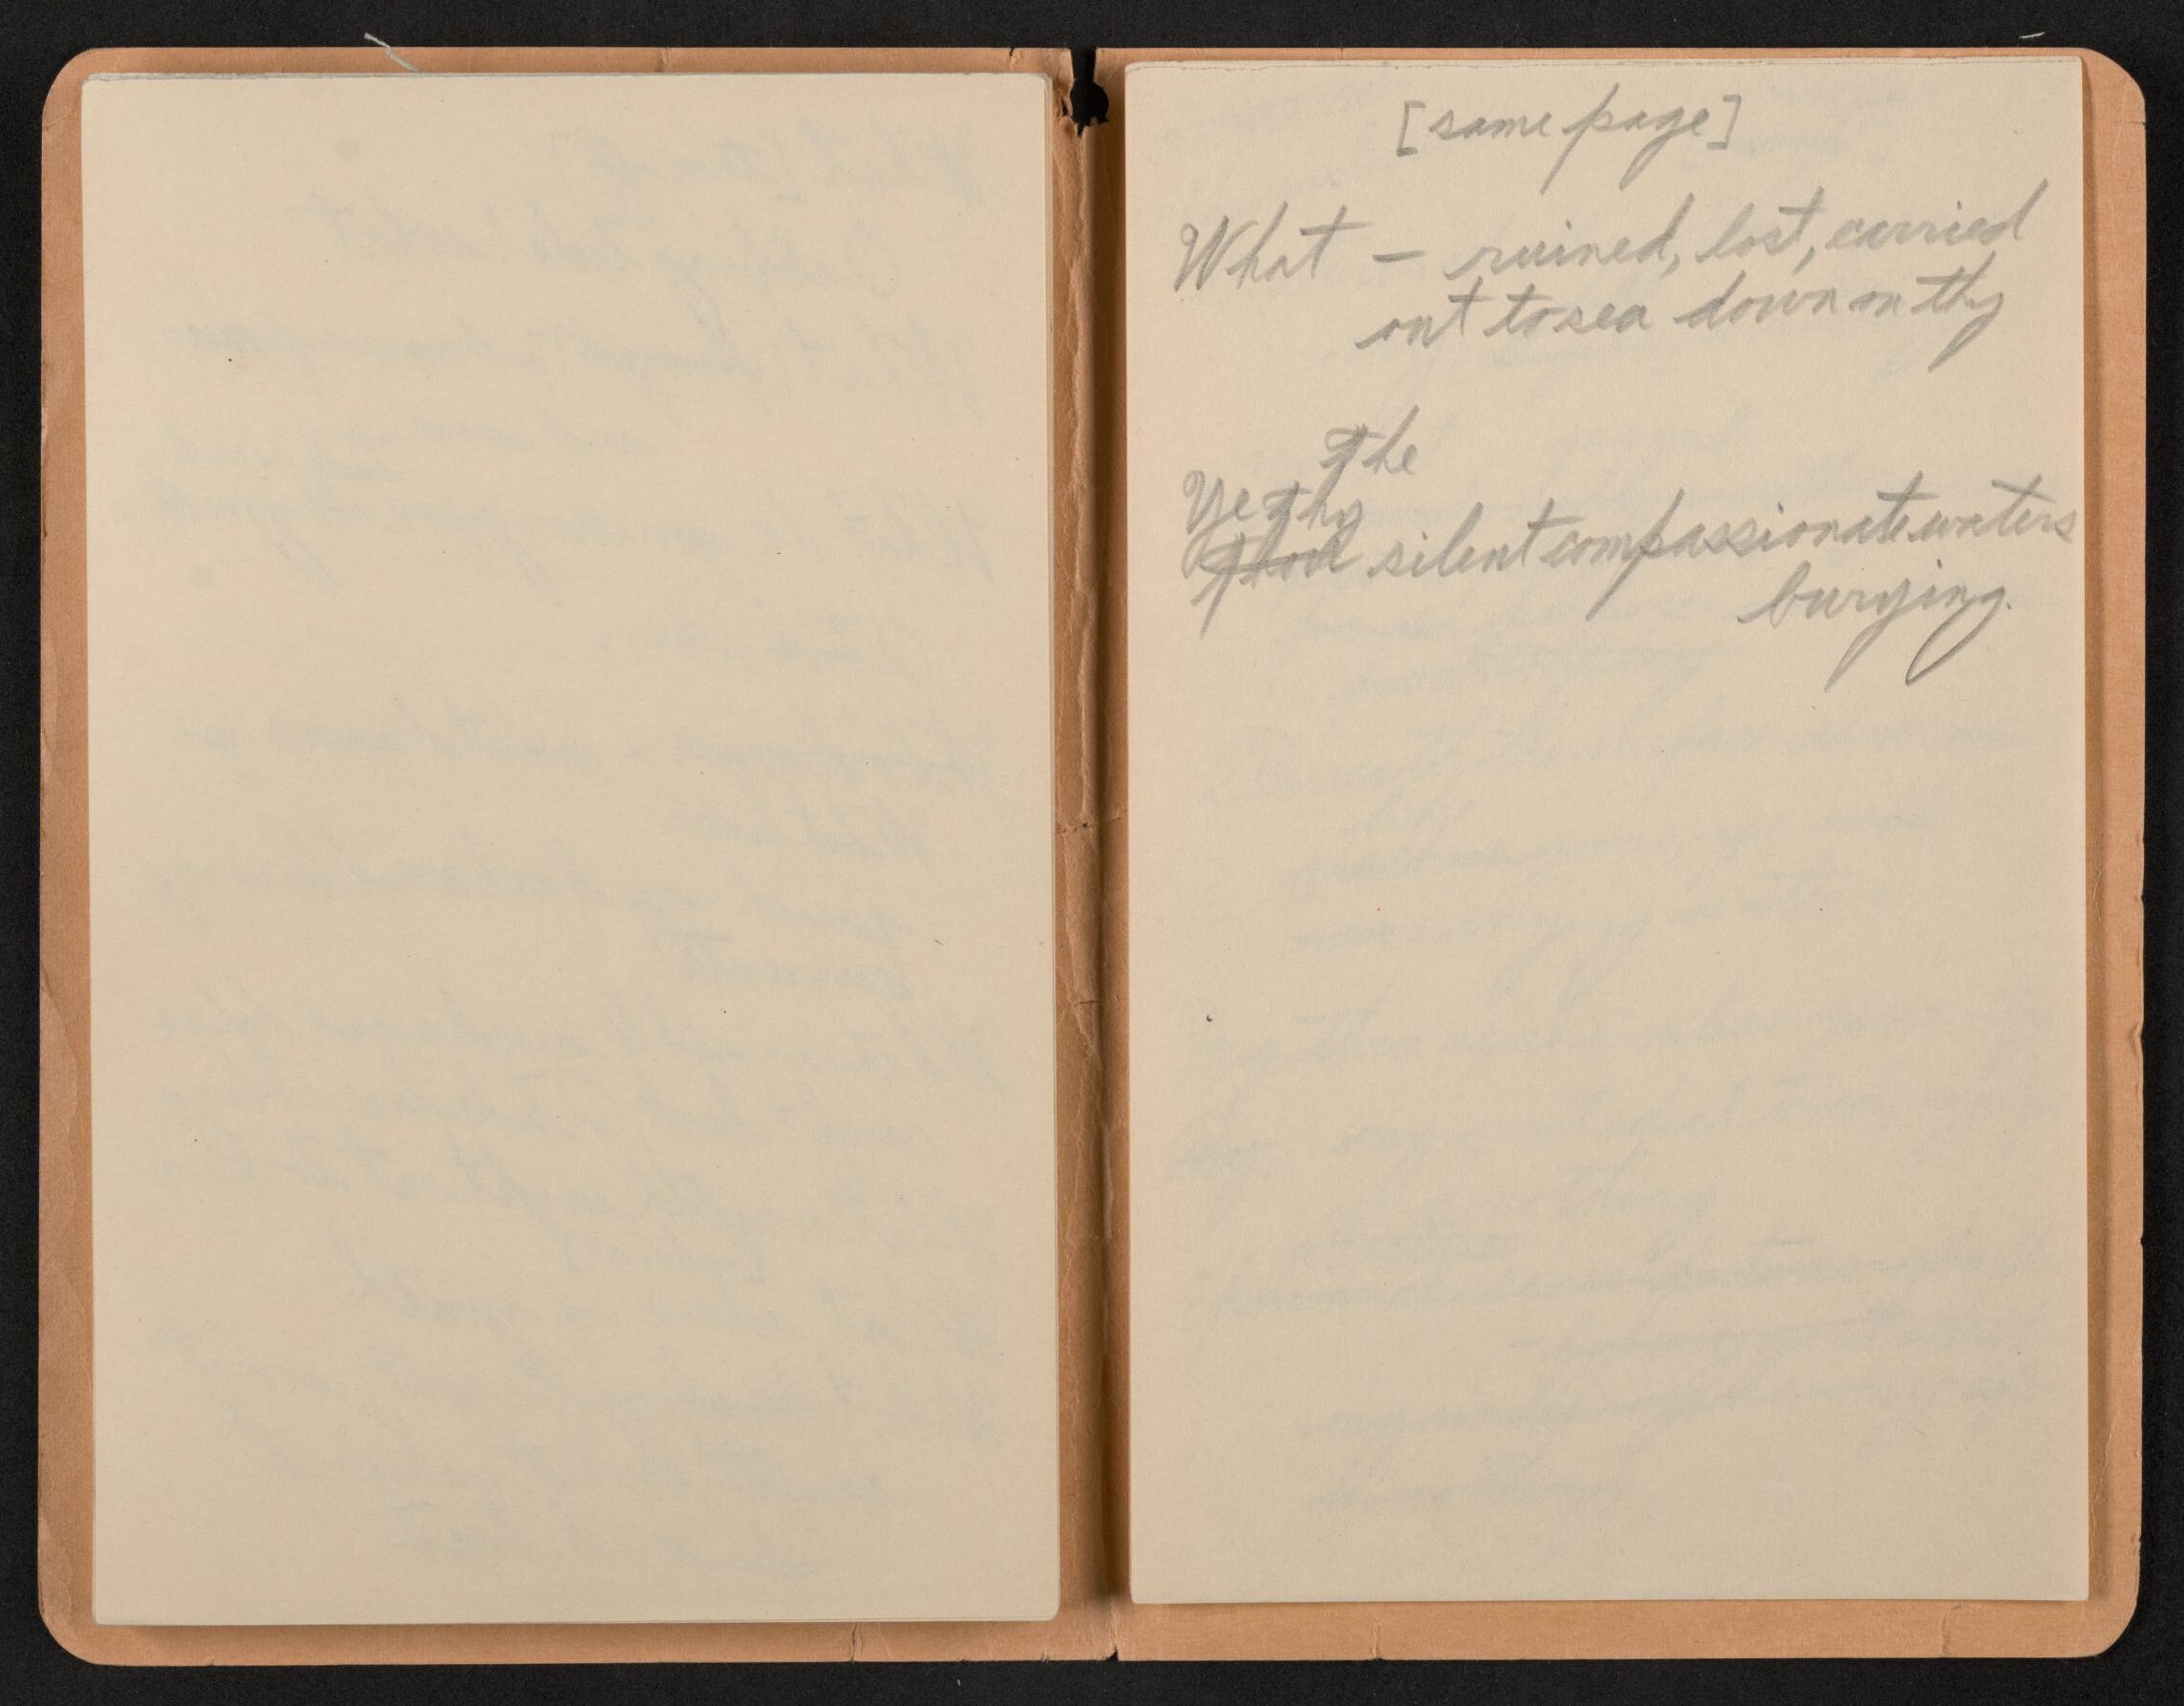 [same page]
What – ruined, lost, carried
out to sea down on thy
The
Ye Thy
Thou silent compassionate waters
burying.